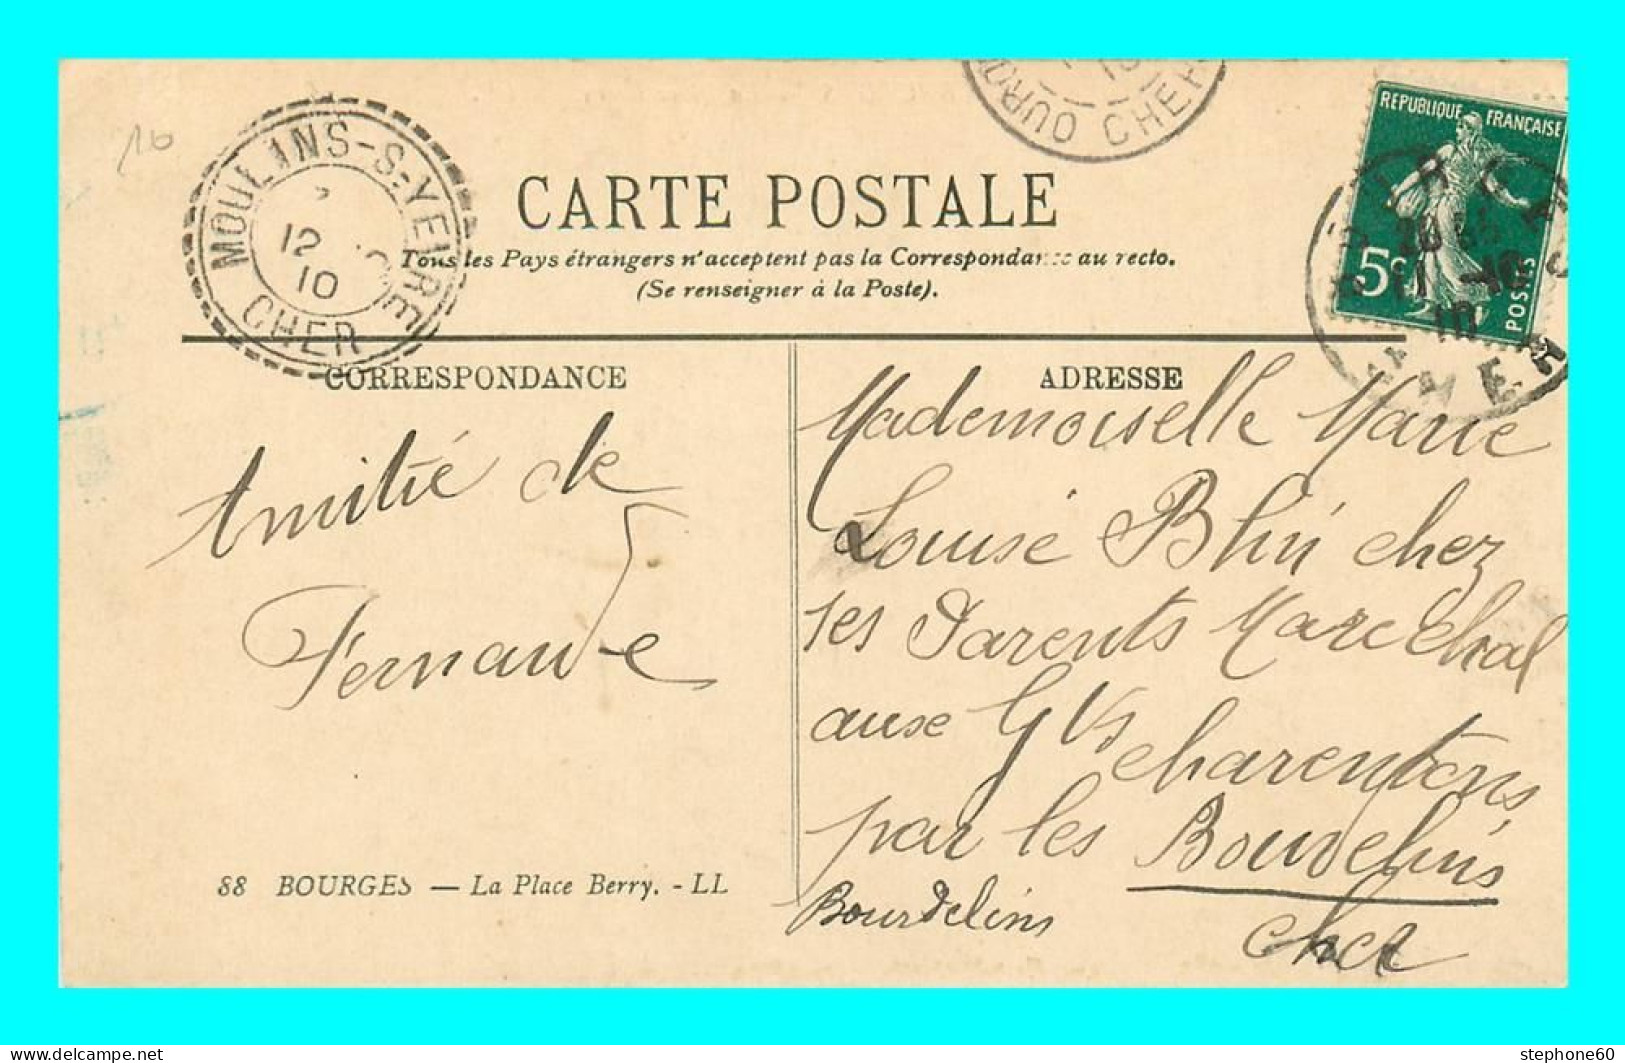 10
MOULINS-S-YEVRE
12
10
CHER
OUROUER
CHER
REPUBLIQUE FRANÇAISE
5c
POSTES
BOURGES
11 -10
10
CHER
CARTE POSTALE
Tous les Pays étrangers n'acceptent pas la Correspondance au recto.
(Se renseigner à la Poste).
CORRESPONDANCE
Amitié de
Fernande
88 BOURGES — La Place Berry. - LL
ADRESSE
Mademoiselle Marie
Louise Blin chez
ses Parents Marechal
aux Gds Charentons
par les Bourdelins
Bourdelins
Cher
stephone60